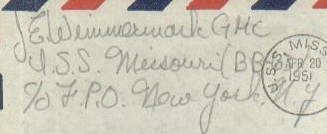 J E Wimmermark GMC
U.S.S. Missouri (BB
U.S.S. MISS
APR 20
1951
c/o F.P.O. New York, N Y